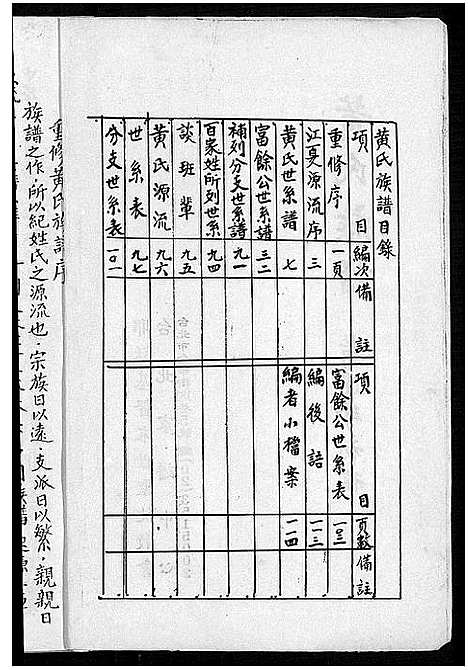 黃氏族譜目錄
項目 編次 備註
重修序 一頁
江夏源流序 三
黃氏世系譜 七
富餘公世系譜 三二
補列分支世系譜 九一
百家姓所列世系 九四
談班輩 九五
黃氏源流 九六
世系表 九七
分支世系表 一〇一
項目 頁數 備註
富餘公世系表 一〇三
編後語 一一三
編者小檔案 一一四
重修黃氏族譜序
族譜之作．所以紀姓氏之源流也．宗族日以遠．支派日以繁．親親日